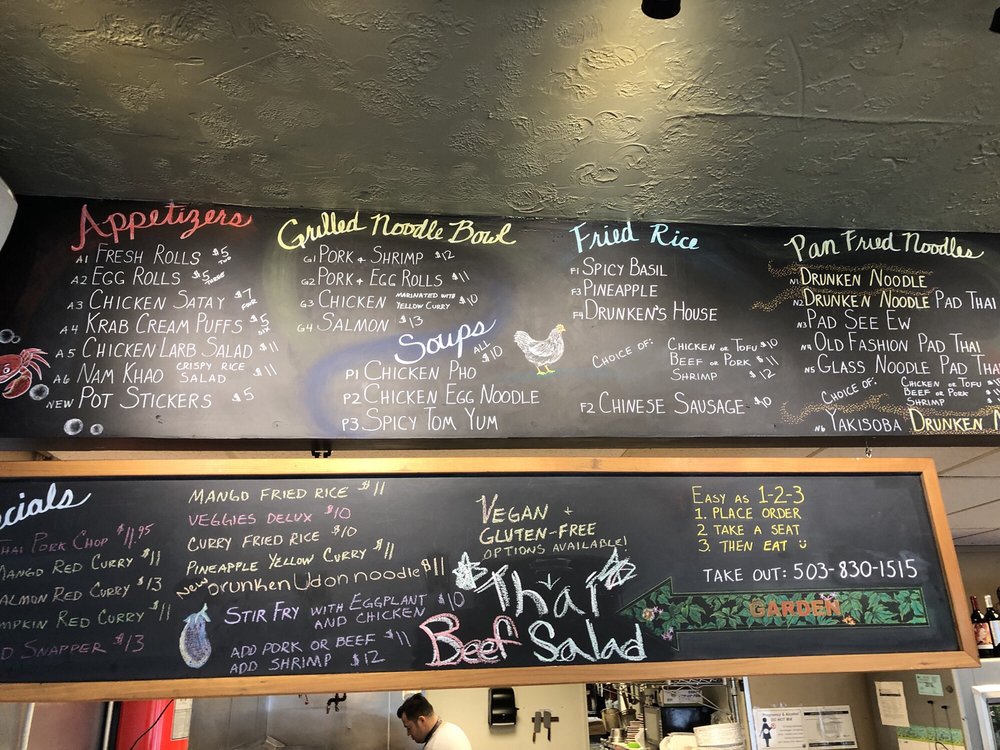 Appetizers
A1 FRESH ROLLS $5
A2 EGG ROLLS $5
A3 CHICKEN SATAY $7
A4 KRAB CREAM PUFFS $5
A5 CHICKEN LARB SALAD $11
A6 NAM KHAO CRISPY RICE SALAD $11
NEW POT STICKERS $5
Grilled Noodle Bowl
G1 PORK + SHRIMP $12
G2 PORK + EGG ROLLS $11
G3 CHICKEN MARINATED WITH YELLOW CURRY $10
G4 SALMON $13
Soups ALL $10
P1 CHICKEN PHO
P2 CHICKEN EGG NOODLE
P3 SPICY TOM YUM
Fried Rice
F1 SPICY BASIL
F3 PINEAPPLE
F4 DRUNKEN'S HOUSE
CHOICE OF: CHICKEN OR TOFU $10
BEEF OR PORK $11
SHRIMP $12
F2 CHINESE SAUSAGE $10
Pan Fried Noodles
N1 DRUNKEN NOODLE
N2 DRUNKEN NOODLE PAD THAI
N3 PAD SEE EW
N4 OLD FASHION PAD THAI
N5 GLASS NOODLE PAD THAI
CHOICE OF: CHICKEN OR TOFU
BEEF OR PORK
SHRIMP
N6 YAKISOBA DRUNKEN
ecials
THAI PORK CHOP $11.95
MANGO RED CURRY $11
ALMON RED CURRY $13
MPKIN RED CURRY $11
D SNAPPER $13
MANGO FRIED RICE $11
VEGGIES DELUX $10
CURRY FRIED RICE $10
PINEAPPLE YELLOW CURRY $11
NEW Drunken Udon noodle $11
STIR FRY WITH EGGPLANT $10
AND CHICKEN
ADD PORK OR BEEF $11
ADD SHRIMP $12
VEGAN +
GLUTEN-FREE
OPTIONS AVAILABLE!
Thai
Beef Salad
EASY AS 1-2-3
1. PLACE ORDER
2. TAKE A SEAT
3. THEN EAT
TAKE OUT: 503-830-1515
GARDEN
Pregnancy & Alcohol
DO NOT MIX